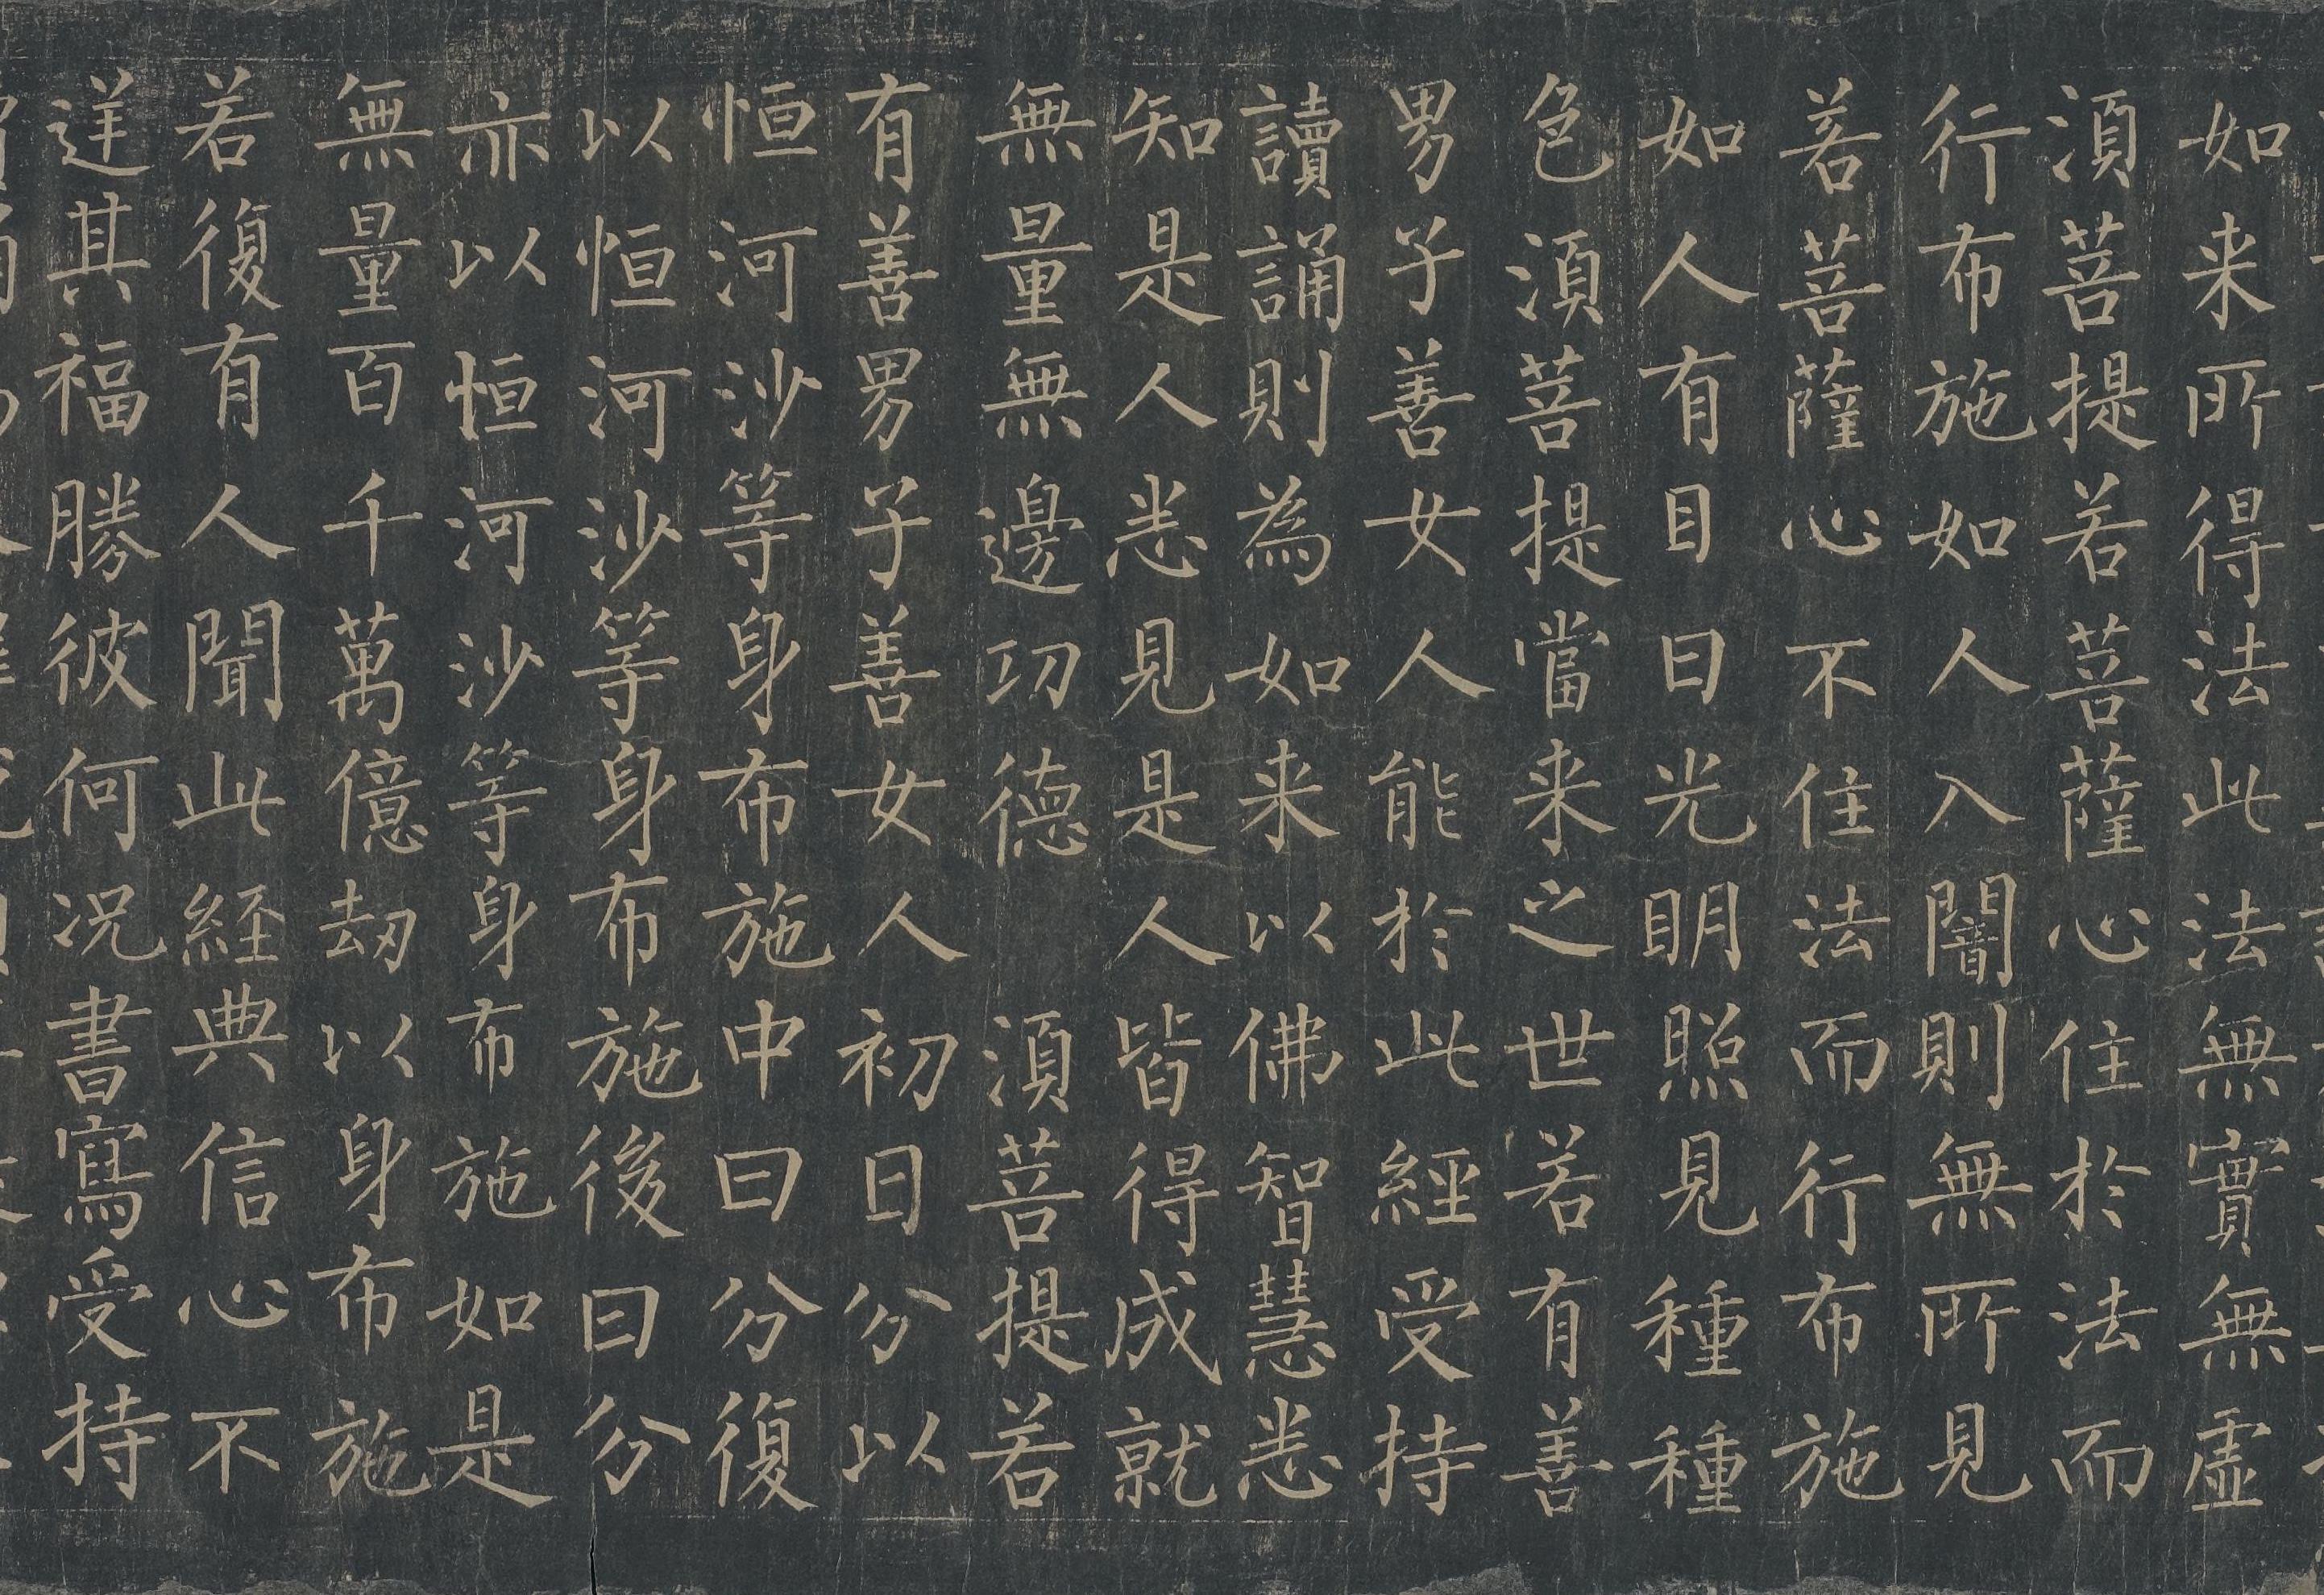 如来所得法此法無實無虛
湏菩提若菩薩心住於法而
行布施如人入闇則無所見
若菩薩心不住法而行布施
如人有目日光明照見種種
色湏菩提當来之世若有善
男子善女人能於此經受持
讀誦則為如来以佛智慧悉
知是人悉見是人皆得成就
無量無邊功德湏菩提若
有善男子善女人初日分以
恒河沙等身布施中日分復
以恒河沙等身布施後日分
亦以恒河沙等身布施如是
無量百千萬億劫以身布施
若復有人聞此経典信心不
逆其福勝彼何況書寫受持